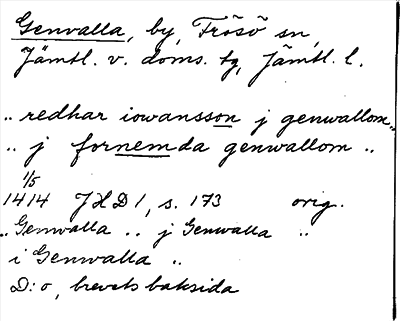 Genvalla, by, Frösö sn,
Jämtl. v. doms. tg, Jämtl. l.
„ redhar iowansson j genwallom „
„ j fornemda genwallom „
1/5
1414 JHD 1, s. 173 orig.
„ Genwalla .. j Genwalla „
i Genwalla „
D:o, brevets baksida